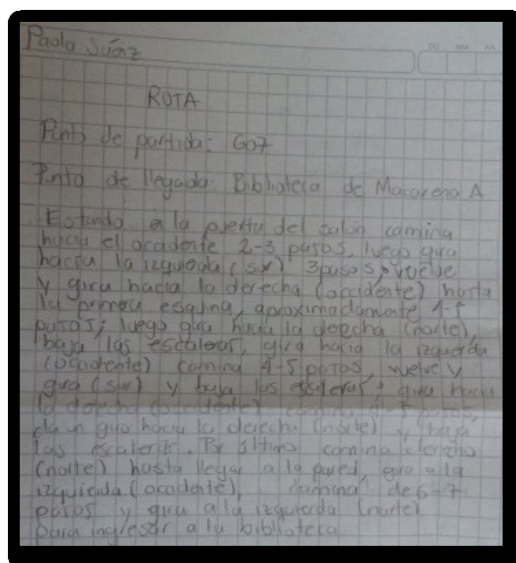 Paola Suárez
RUTA
Punto de partida: 607
Punto de llegada: Biblioteca de Macarena A
Estando e la puerta del salon camina
hacia el occidente 2-3 pasos, luego gira
hacia la izquieda (sur) 3pasos, vuelve
y gira hacia la derecha (occidente) hasta
la primera esquina, aproximadamente 4-5
pasos; luego gira hacia la derecha (norte),
baja las escaleras, gira hacia la izquierda
(occidente) camina 4-5 pasos, vuelve y
gira (sur) y baja las escaleras, gira hacia
la derecha (occidente) camina 4-5 pasos,
da un giro hacia la derecha (norte) y baja
las escaleras. Por último camina derecho
(norte) hasta llegar a la pared, gira a la
izquieada (occidente), camina de 6-7
pasos y gira a la izquierda (norte)
para ingresar a la biblioteca